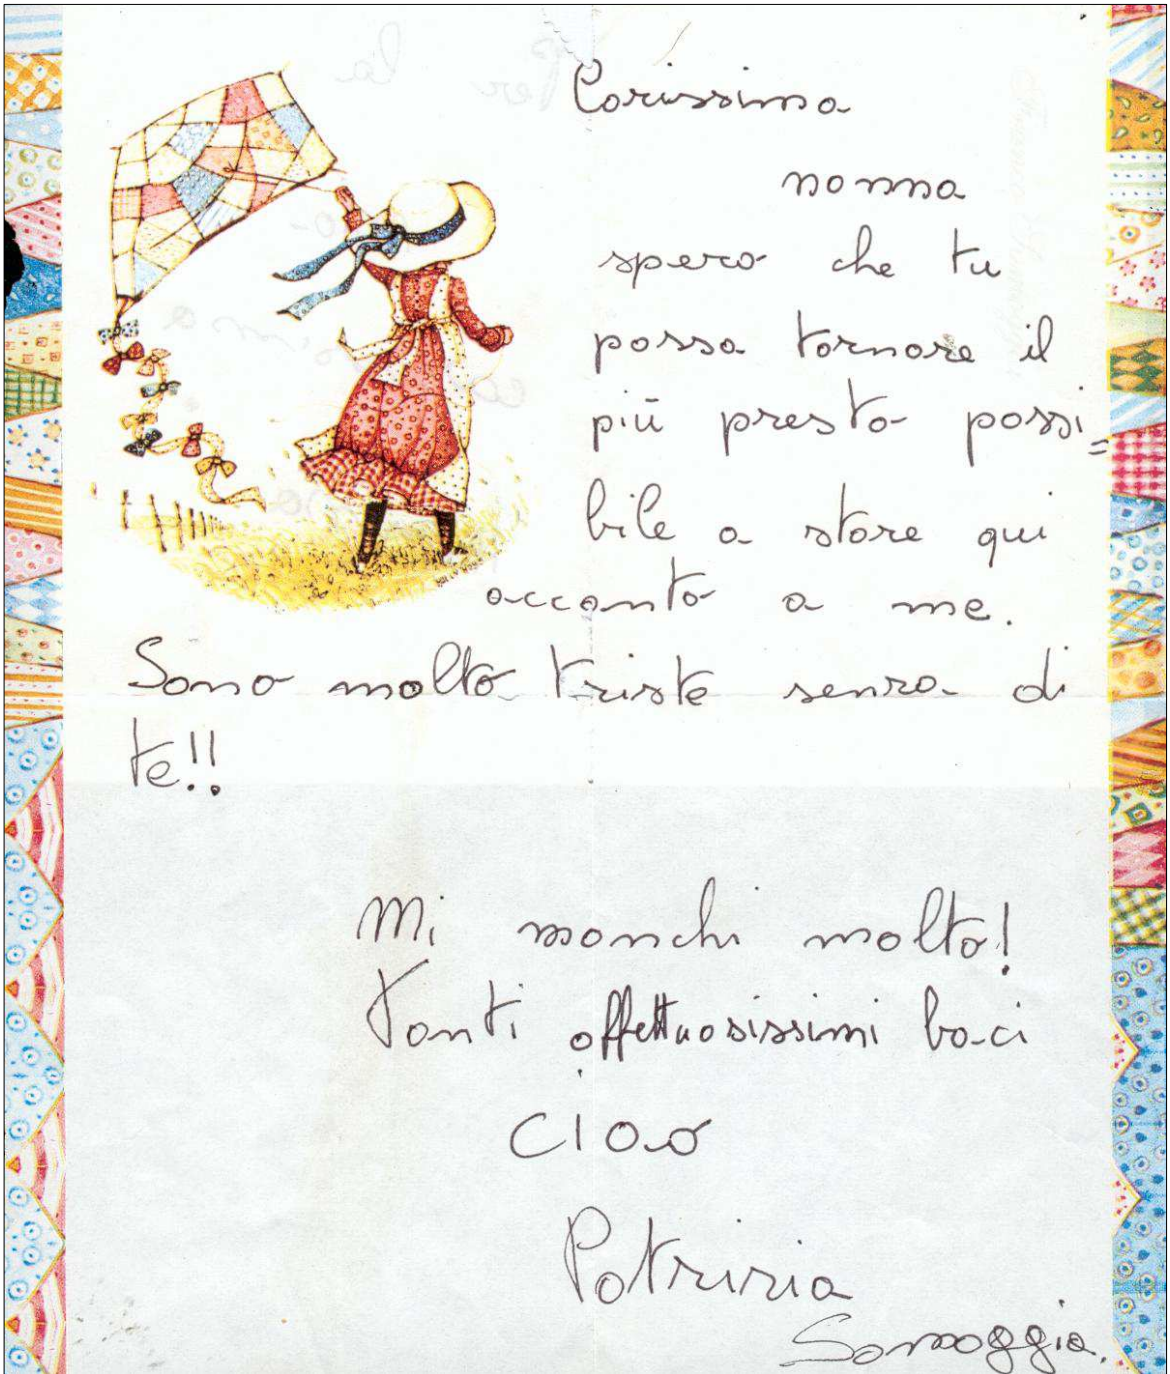 Carissima
nonna
spero che tu
possa tornare il
più presto possi=
bile a stare qui
accanto a me.
Sono molto triste senza di
te!!
Mi manchi molto!
Tanti affettuosissimi baci
ciao
Patrizia
Samoggia.